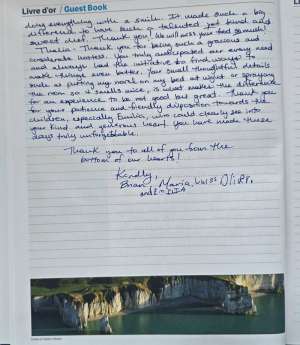 Livre d'or / Guest Book
doing everything with a smile. It made such a big
difference to have such a talented yet kind and
sweet chef. Thank you! We will miss your food Samuel!
Thalia: Thank you for being such a gracious and
considerate hostess. You truly anticipated our every need
and always had the initiative to find ways to
make things even better. Your small thoughtful details
such as putting my mask on my bed at night or spraying
the room so it smells nice, is what makes the difference
for an experience to be not good but great. Thank you
for your patience and friendly disposition towards the
children, especially Emilia, who could clearly see into
your kind and generous heart. You have made these
days truly unforgettable.
Thank you to all of you from the
bottom of our hearts!
Kindly,
Brian, Maria,
and EmiLIA